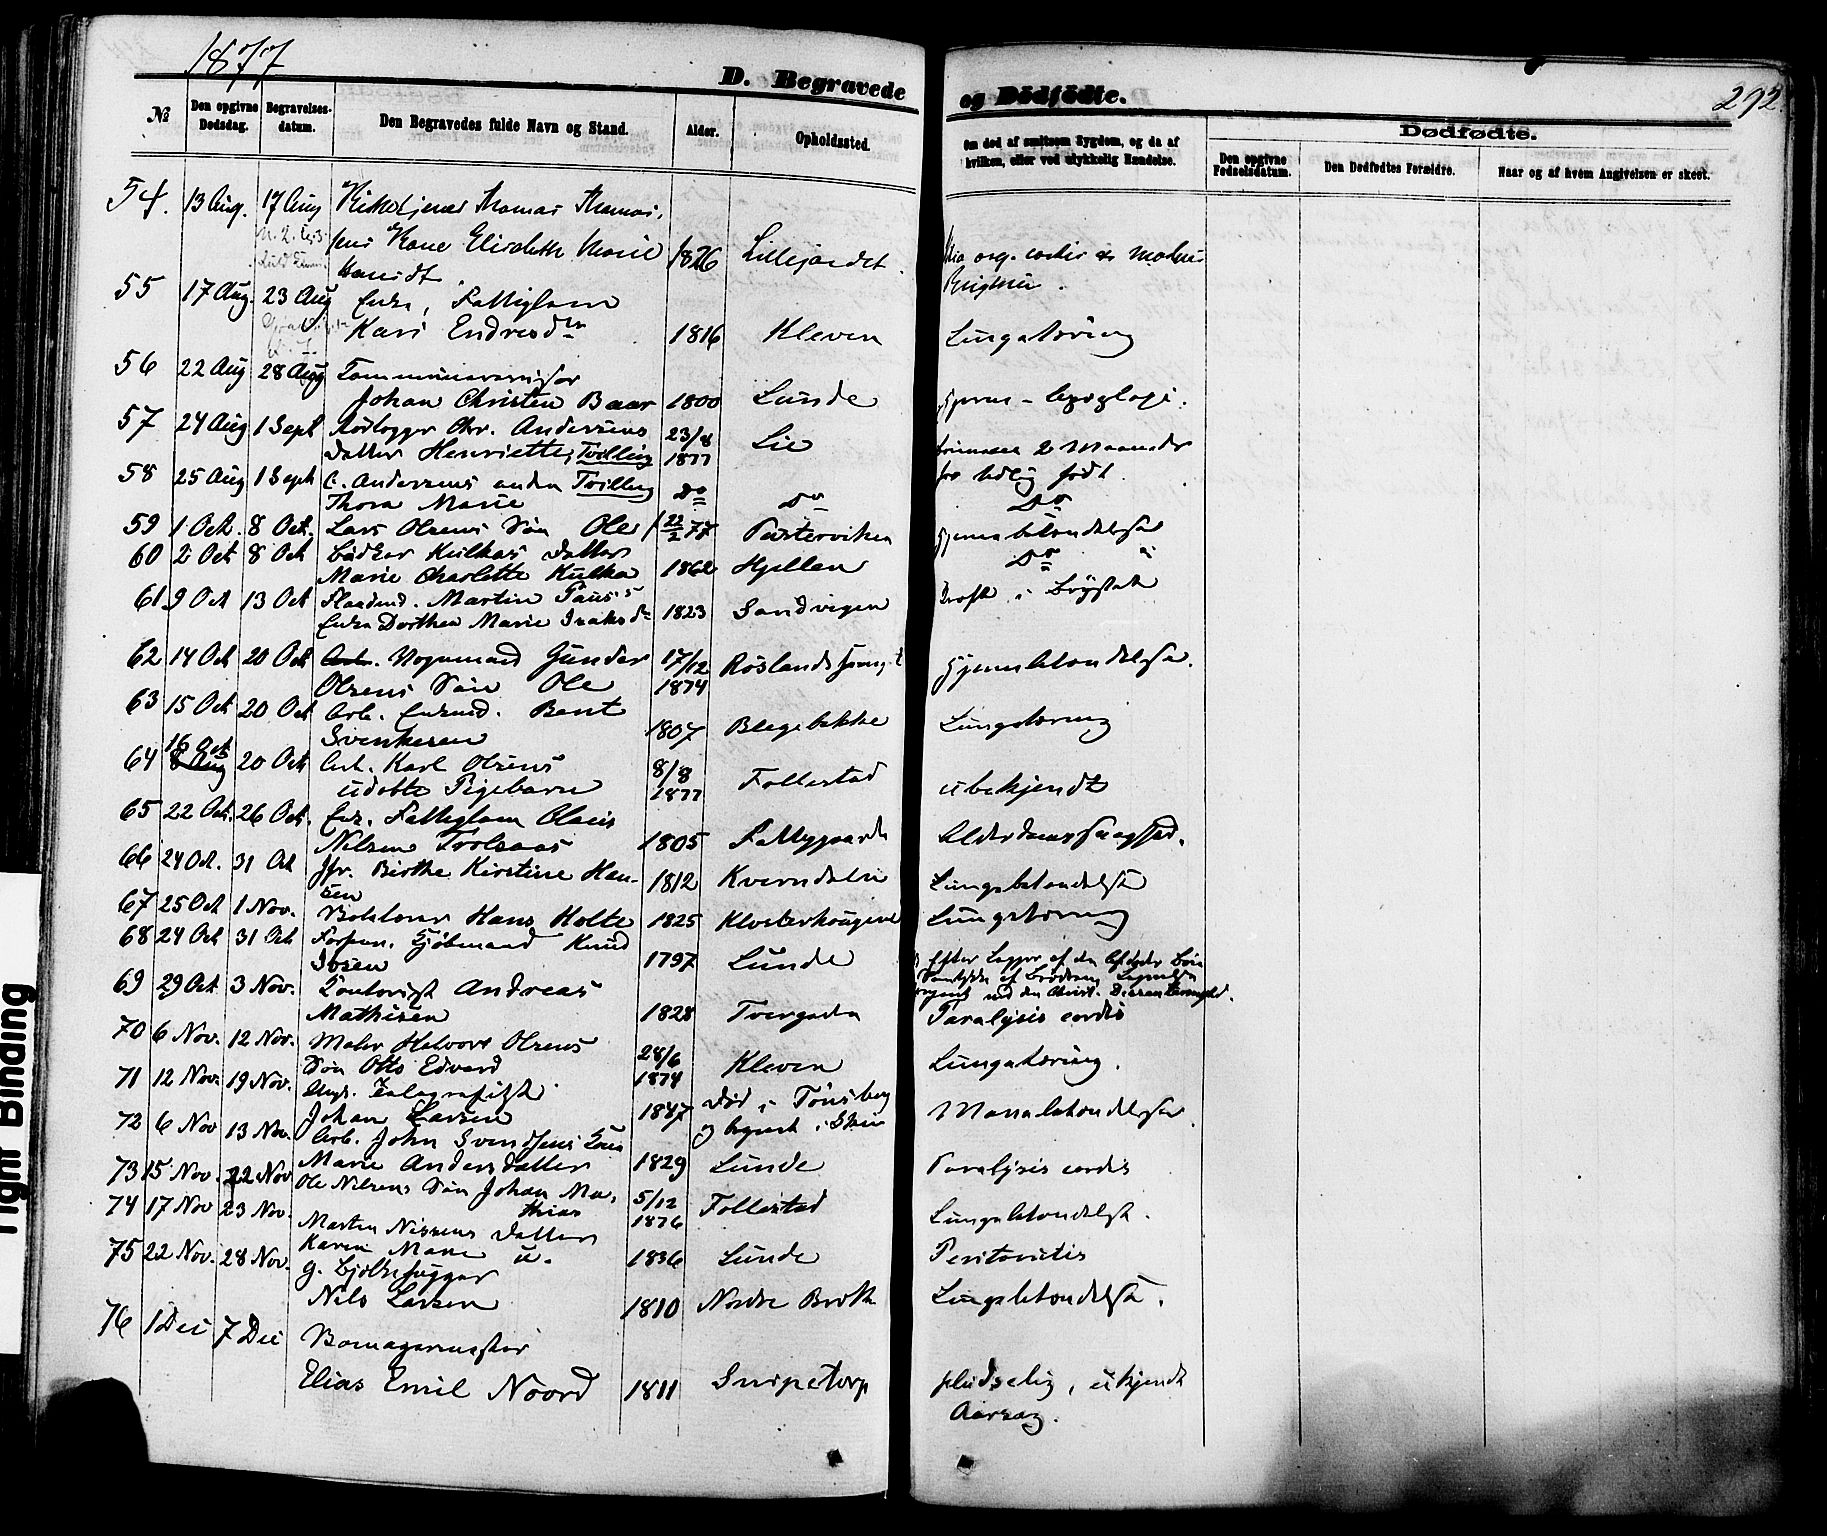 1877
D. Begravede og Dödfödte.
292
№
Den opgivne Dødsdag.
Begravelses-datum.
Den Begravedes fulde Navn og Stand.
Alder.
Opholdssted.
Om død af smitsom Sygdom, og da af hvilken, eller ved ulykkelig Hændelse.
Dødfødte.
Den opgivne Fødselsdatum.
Den Dødfødtes Forældre.
Naar og af hvem Angivelsen er skeet.
54. 13 Aug. 17 Aug Kirketjener Thomas Thomas-
sens Kone Elisabeth Marie 1826 Lillejordet
55 17 Aug. 23 Aug Enke, Fattiglem
Kari Endresdtr 1816 Kleven Lungetæring
56 22 Aug 28 Aug
Johan Christen Baar 1800 Lunde
57 24 Aug 1 Sept Chr. Andersens 23/8
Datter Henriette, Tvilling 1877 Lie 2 Maaneder
for tidlig født
58 25 Aug 1 Sept C. Andersens anden Tvilling
Thora Marie Do Do Do
59 1 Oct. 8 Oct. Lars Olsens Søn Ole 22/2 77 Hjernebetændelse
60 2 Oct 8 Oct Bødker Kulkas Datter
Marie Charlotte Kulka 1862 Hjellen Do
61 9 Oct 13 Oct Martin Paus's
Enke Dorthea Marie Isaksdr 1823 Sandvigen Kræft i Brystet
62 14 Oct 20 Oct Vognmand Gunder 17/12
Olsens Søn Ole 1874 Hjernebetændelse.
63 15 Oct 20 Oct Arb. Enkemd. Bent
Svenkesen 1807 Blegebakken Lungetæring
64 16 Oct 8 Aug 20 Oct Arb. Karl Olsens 8/8
udøbte Pigebarn 1877 Follestad ubekjendt
65 22 Oct. 26 Oct. Enk. Fattiglem Claus
Nilsen 1805 Fattiggaarden Alderdomssvaghed.
66 24 Oct. 31 Oct Jfr. Birthe Kirstine Han-
sen 1812 Kverndalen Lungebetændelse
67 25 Oct 1 Nov. Hans Holte 1825 Klosterhougene Lungetæring
68 24 Oct 31 Oct Kjøbmand Knud
Ibsen 1797 Lunde
69 29 Oct 3 Nov. Kontorist Andreas
Mathisen 1828 Tvergaden Paralysis cordis
70 6 Nov. 12 Nov. Maler Halvors Olsens 28/6
Søn Otto Edvard 1874 Kleven Lungetæring.
71 12 Nov. 19 Nov. Telegrafist
Johan Larsen 1847 Død i Tönsberg
og begravet i Skien Mavebetændelse
72 6 Nov 13 Nov. Arb. John Svendsens Kone
Marie Andersdatter 1829 Lunde Paralysis cordis
73 15 Nov. 22 Nov Ole Nilsens Søn Johan Ma-
thias 5/12 1876 Follestad Lungebetændelse.
74 17 Nov 23 Nov. Morten Nissens Datter
Karen Marie u. 1836 Lunde Peritonitis
75 22 Nov. 28 Nov. G. Bjelkehugger
Nils Larsen 1810 Nordre Lungebetændelse.
76 1 Dec 7 Dec Bomagermester
Elias Emil Noord 1811 Snipetorp pludselig, ukjendt
Aarsag.
Tight Binding